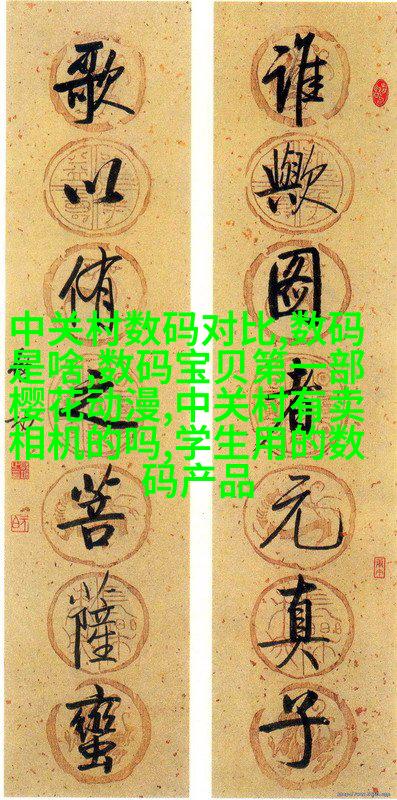 谁歟图者元真子
歌以侑之菩薩蠻
中关村数码对比,数码
是啥,数码宝贝第一部
樱花动漫,中关村有卖
相机的吗,学生用的数
码产品